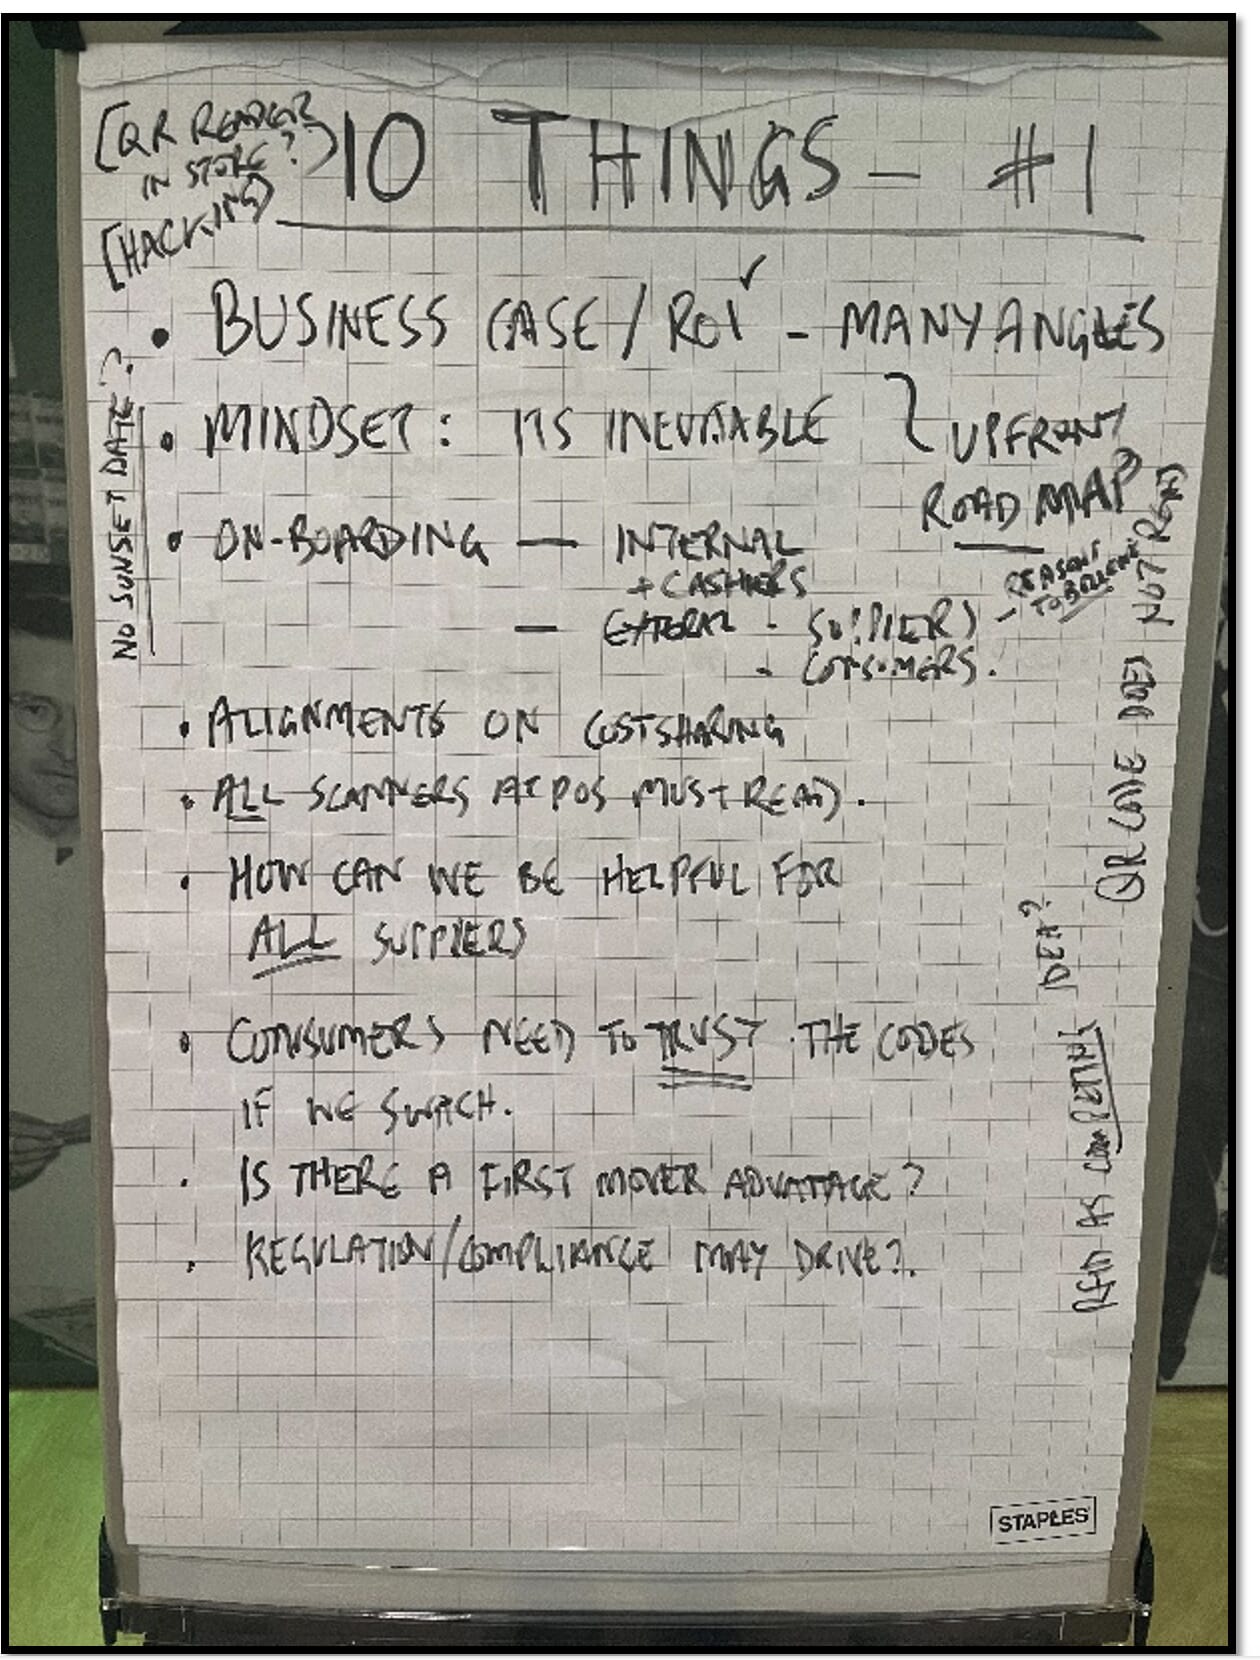 [QR READER
IN STORE?]
[HACKING]
10 THINGS - #1
• BUSINESS CASE / ROI ✓ - MANY ANGLES
• MINDSET: ITS INEVITABLE } UPFRONT
ROAD MAP
• ON-BOARDING — INTERNAL
+ CASHIERS
— EXTERAL - SUPPLIERS - REASONS
TO BELIEVE
- CONSUMERS.
• ALIGNMENTS ON COSTSHARING
• ALL SCANNERS AT POS MUST READ.
• HOW CAN WE BE HELPFUL FOR
ALL SUPPLIERS
• CONSUMERS NEED TO TRUST THE CODES
IF WE SWITCH.
• IS THERE A FIRST MOVER ADVATTAGE?
• REGULATION/COMPLIANCE MAY DRIVE?.
NO SUNSET DATE?
QR CODE DOES NOT READ
RFID AS COMPETING IDEA?
STAPLES